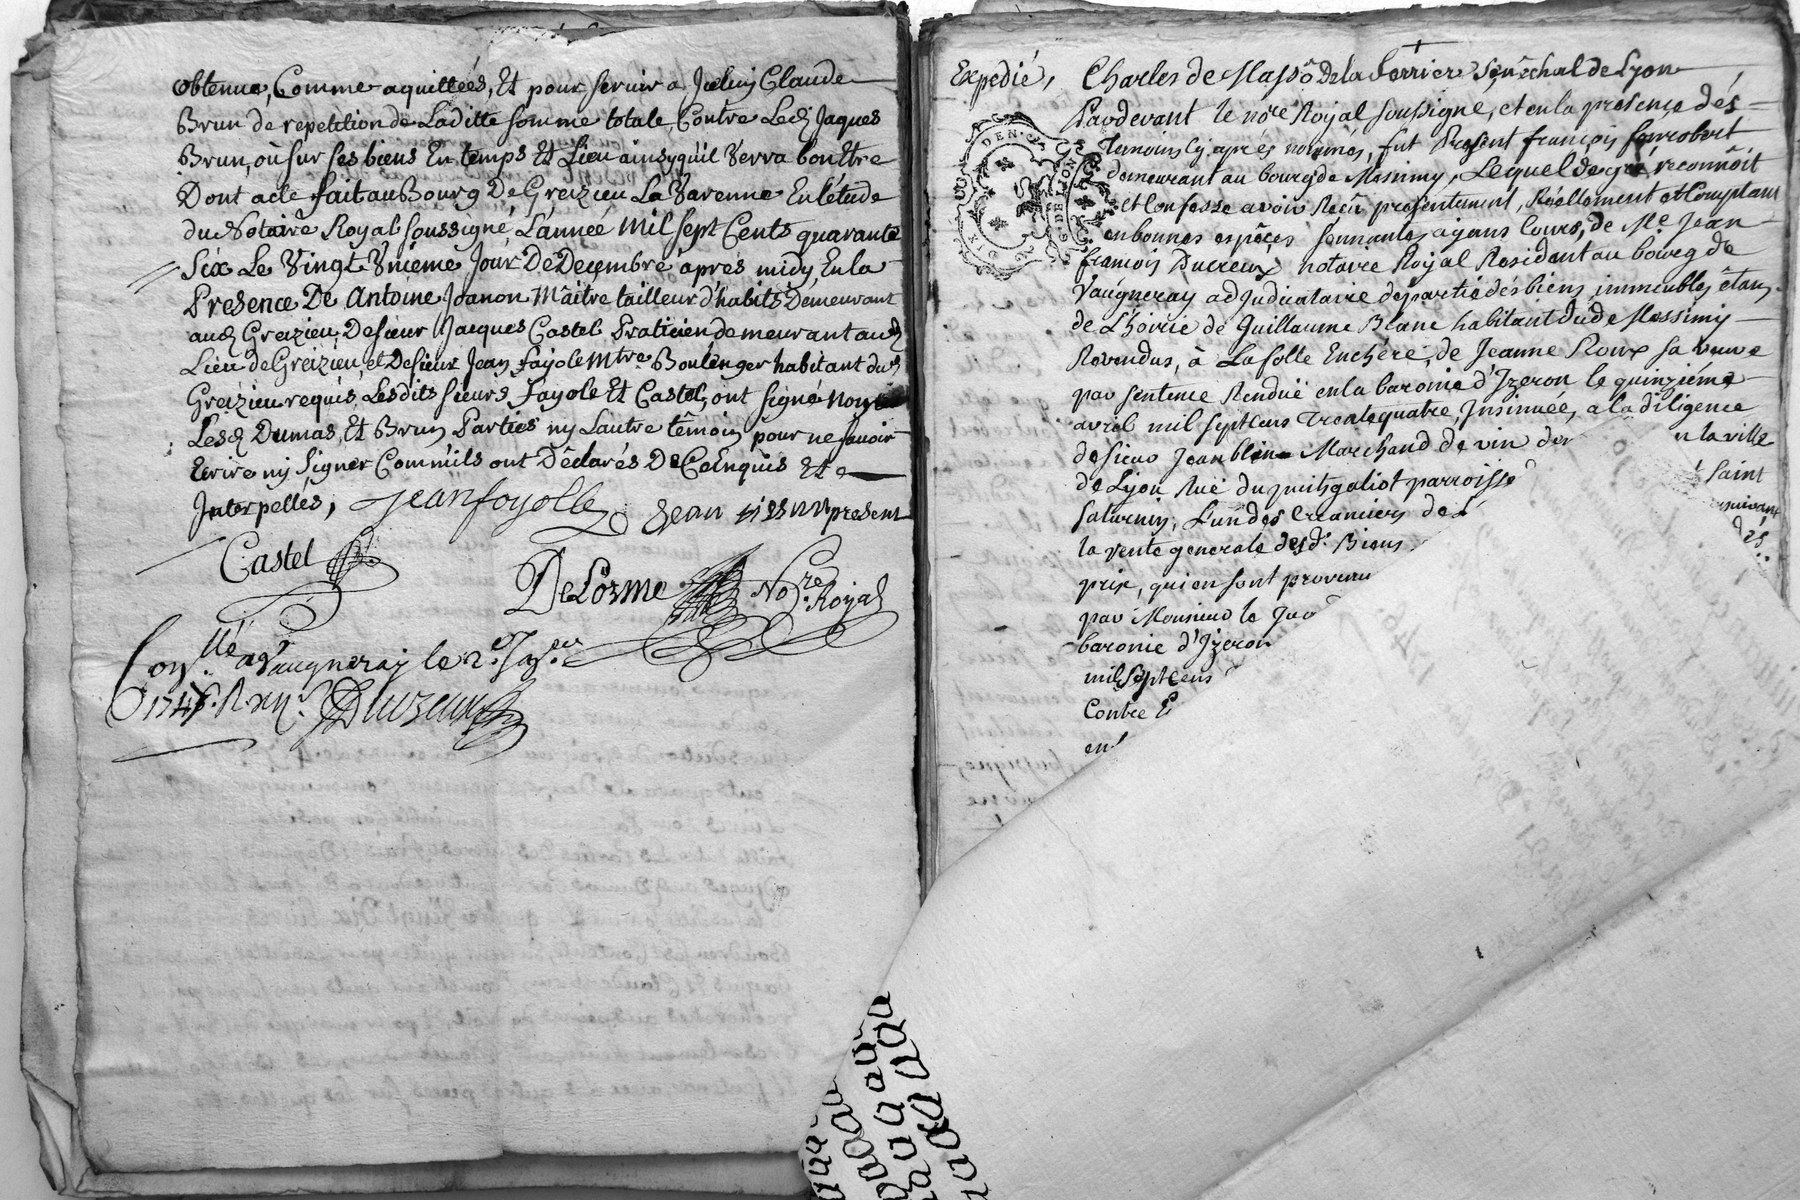 obtenue, Comme aquittées, Et pour servir a Jceluy Claude
Brun de repetition de Laditte somme totale, Contre Led Jaques
Brun, où sur ses biens En temps Et Lieu ainsy qu'il verra bon Etre
Dont acte fait au Bourg De Greizieu La Varenne En l'étude
du Notaire Royal soussigné, L'année Mil sept Cents quarante
Six Le Vingt Vnieme Jour De Decembre après midy En la
Presence De Antoine Joanon Maitre tailleur d'habits Demeurant
aud Greizieu, De sieur Jacques Castel Praticien demeurant aud
Lieu de Greizieu, et De sieur Jean Fayole mtre Boulenger habitant dud
Greizieu requis, Lesdits sieurs Fayole Et Castel, ont signé non
Lesd Dumas, Et Brun Parties ny Lautre têmoin pour ne scavoir
Ecrire ny Signer Comm'ils ont Déclarés De Ce Enquis Et
Interpellés, jean foyolle present
Castel
DeLorme Nore Royal
Conllé a Vaugneray le 2e
174
Expedié, Charles de Masso De la Ferriere Senéchal de Lyon
Pardevant le nore Royal soussigné, et en la presence dés
temoins cy après nommés, fut Present françois
demeurant au bourg de Messimy, Lequel de gré reconnoit
et Confesse avoir Recu presentement, Réellement et Comptant
en bonnes espêces sonnantes ayans Cours, de Me Jean
françois Ducreux notaire Royal Residant au bourg de
Vaugneray adjudicataire de partie dés biens immeubles êtans
de L'hoirie de Guillaume Blanc habitant dud Messimy
Revendus, à La folle Enchére, de Jeanne Roux sa veuve
par sentence Renduë en la baronie d'Yzeron le quinziéme
avril mil sept cens trente quatre, Insinuée, a la diligence
de sieur Jean blanc Marchand de vin de n la ville
de Lyon Ruë du puits galiot parroisse Saint
saturnin, L'un des creanciers de L suivant
la vente generale desd. Biens dés
prix, qui en sont provenu
par Monsieur le Jug
baronie d'Yzeron
mil Sept cens
Contre E
en
DE LYON